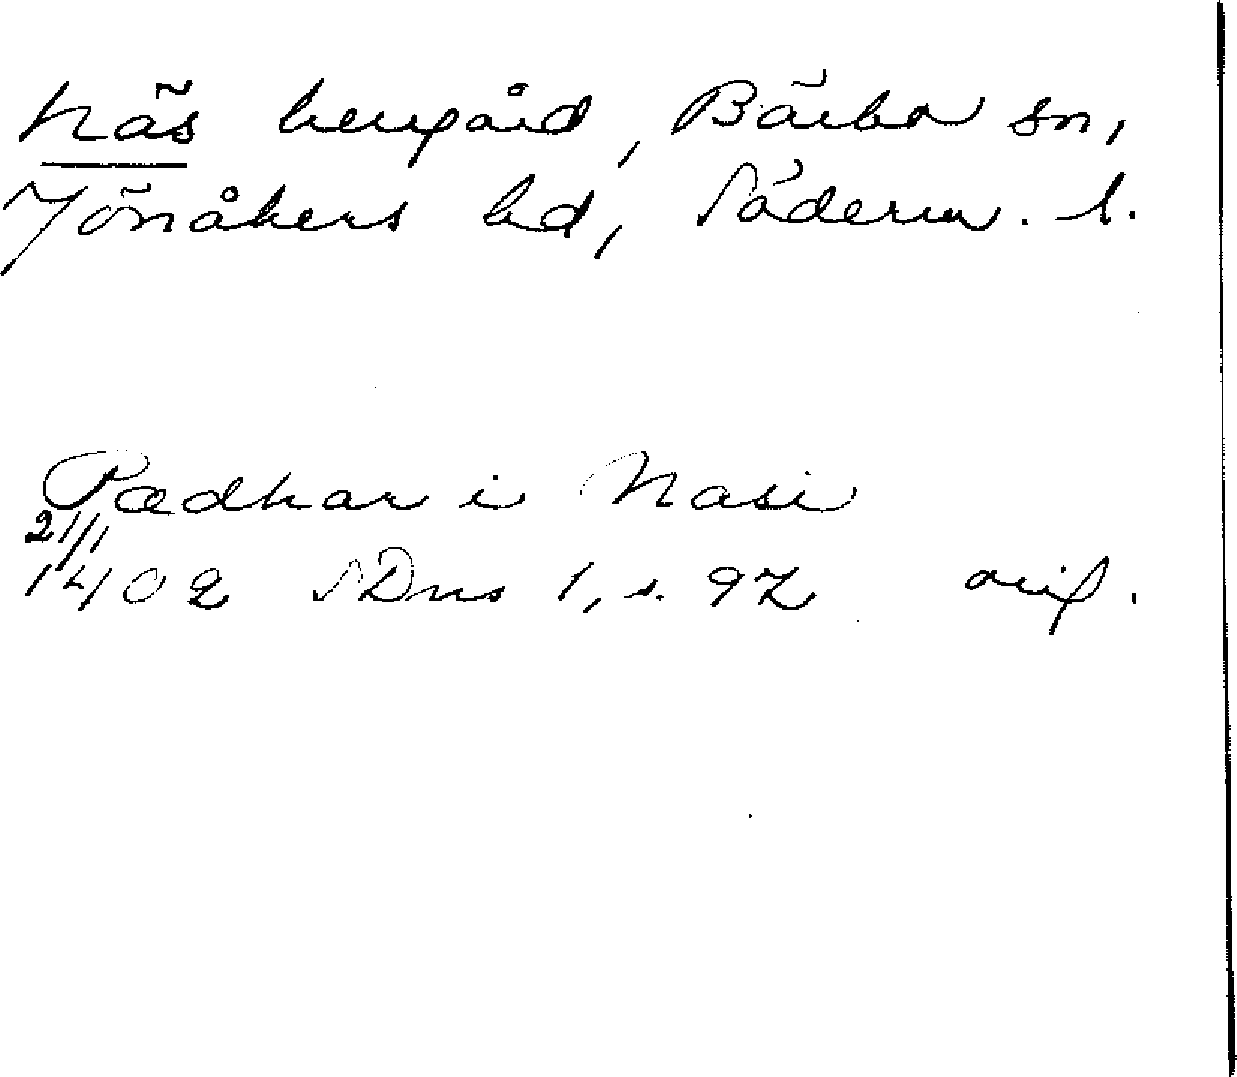 Näs herrgård, Bärbo sn,
Jönåkers hd, Söderm. l.
Pædhar i Nasi
21/1
1402 SDns 1, s. 97 orig.